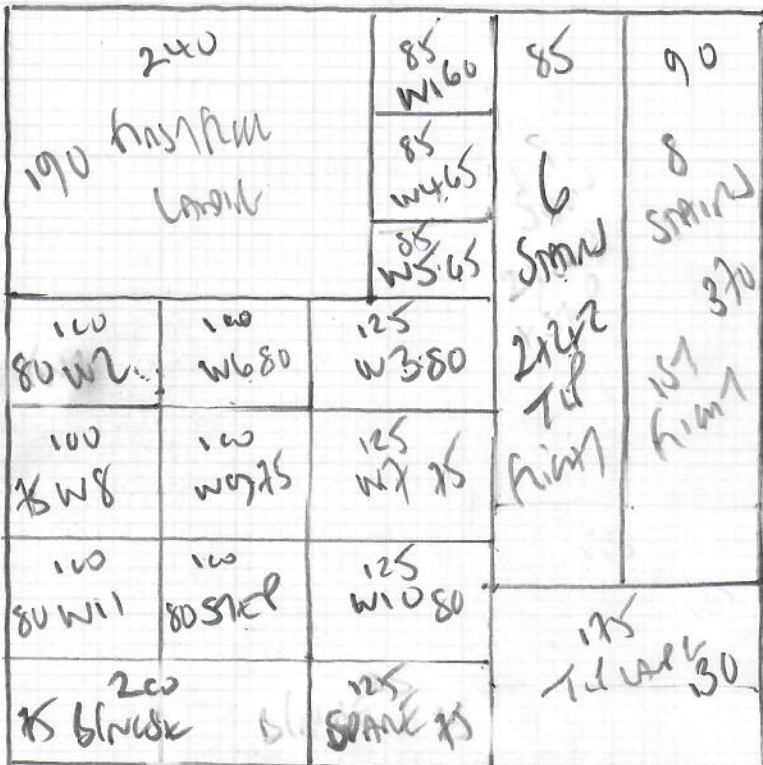 240
190 FIRST FLOOR
LANDING
85
W1 60
85
W4 65
85
W5 65
85
6
STAIRS
2+2+2
TOP
FLIGHT
90
8
STAIRS
370
1ST
FLIGHT
100
80 W2
100
W6 80
125
W3 80
100
75 W8
100
W9 75
125
W7 75
100
80 W11
100
80 STEP
125
W10 80
200
75
125
SPARE 75
175
130